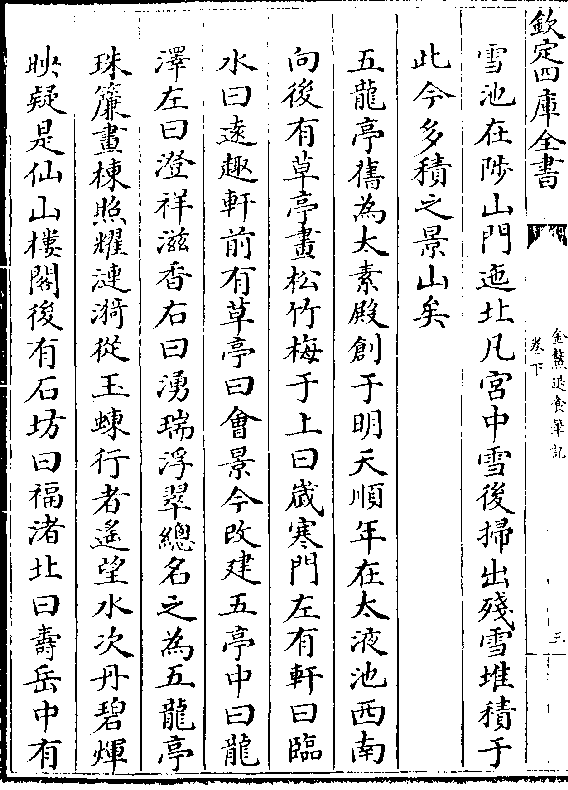 欽定四庫全書
金鰲退食筆記
卷下
三
雪池在陟山門迤北凡宮中雪後掃出殘雪堆積于
此今多積之景山矣
五龍亭舊為太素殿創于明天順年在太液池西南
向後有草亭畫松竹梅于上曰歲寒門左有軒曰臨
水曰遠趣軒前有草亭曰會景今改建五亭中曰龍
澤左曰澄祥滋香右曰湧瑞浮翠總名之為五龍亭
珠簾畫棟照耀漣漪從玉蝀行者遙望水次丹碧煇
映疑是仙山樓閣後有石坊曰福渚北曰壽岳中有